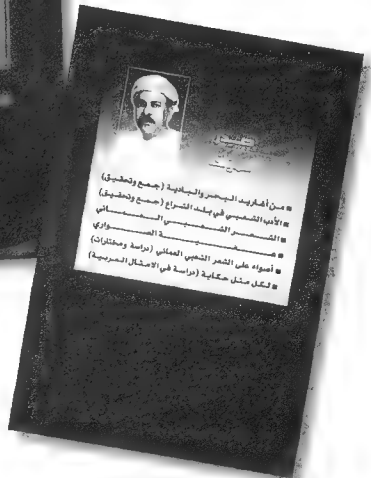 من أغاريد البحر والبادية (جمع وتحقيق)
الأدب الشعبي في بلد الشراع (جمع وتحقيق)
الشعر الشعبي العماني
الصواري
أضواء على الشعر الشعبي العماني (دراسة ومختارات)
لكل مثل حكاية (دراسة في الأمثال العربية)